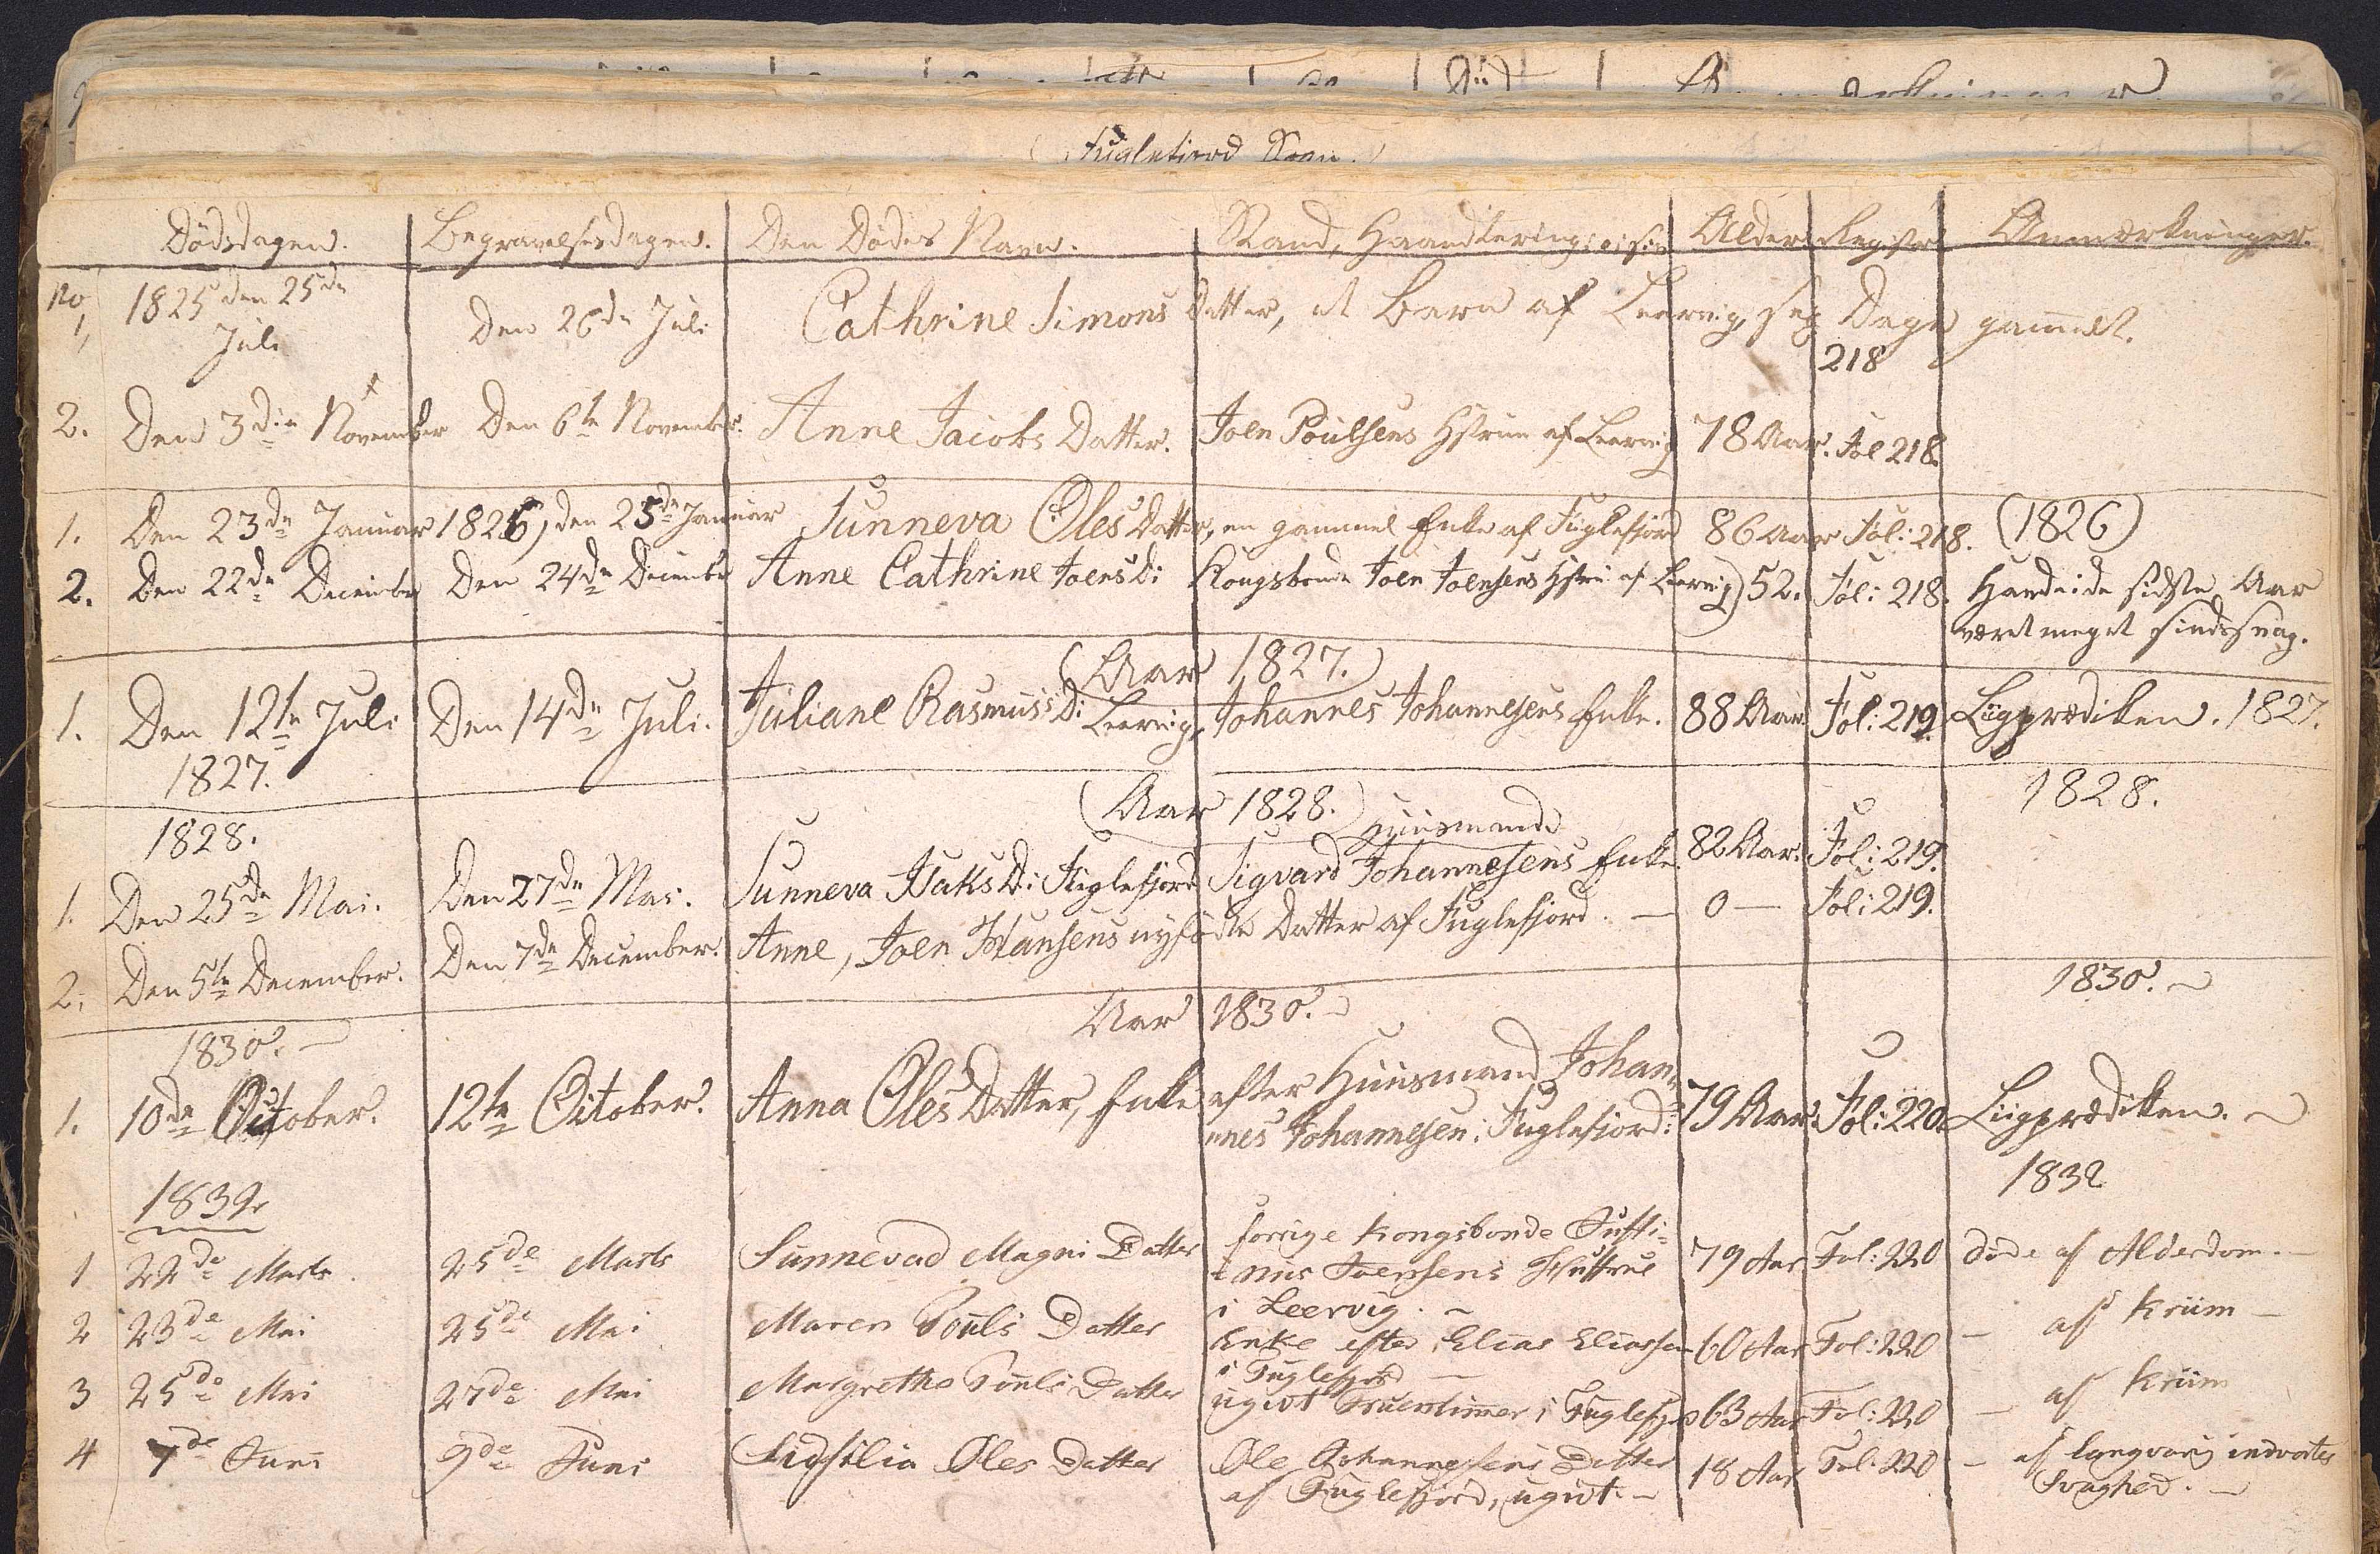 Fuglefiord Sogn.
Dödsdagen. Begravelsesdagen. Den Dödes Navn. Stand, Haandtering Alder Register Anmærkninger.
No 1, 1825 den 25de Juli Den 26de Juli Cathrine Simons Datter, et Barn af Leervig, sex Dage gammelt.
218
2. Den 3die November Den 6te November. Anne Jacobs Datter. Joen Poulsens Hstrue af Leervig 78 Aar. Fol 218.
1. Den 23de Januar 1826, den 25de Januar Sunneva Oles Datter, en gammel Enke af Fuglefjord 86 Aar Fol: 218. (1826)
2. Den 22de December Den 24de December Anne Cathrine Joens D: Kongsbonde Joen Joensens Hstru af Leervig) 52. Fol: 218. Havde i de sidste Aar
været meget sindssvag.
(Aar 1827.)
1. Den 12te Juli Den 14de Juli. Juliane Rasmus's D: Leervig, Johannes Johannesens Enke. 88 Aar. Fol: 219. Liigprædiken. 1827.
1827.
(Aar 1828.) 1828.
1828. Huusmand
1. Den 25de Mai. Den 27de Mai. Sunneva Isaks D: Fuglefjord Sigvard Johannesens Enke. 82 Aar. Fol: 219.
2. Den 5te December. Den 7de December. Anne, Joen Hansens nyfödte Datter af Fuglefjord. — 0 — Fol: 219.
Aar 1830. 1830.
1830.
1. 10de October. 12te October. Anna Oles Datter, Enke efter Huusmand Johan-
nes Johannesen i Fuglefjord: 79 Aar. Fol: 220. Liigprædiken.
1832. 1832
1 22de Marts. 25de Marts Sunnevad Magni Datter forrige Kongsbonde Justi-
nus Joensens Hustrue 79 Aar Fol: 220 döde af Alderdom. —
i Leervig. —
2 23de Mai 25de Mai Maren Pouls Datter Enke efter Elias Eliassen 60 Aar Fol: 220 — af Kriim —
i Fuglefjord —
3 25de Mai 27de Mai Margrethe Pouls Datter ugivt Fruentimer i Fuglefjord 63 Aar Fol: 220 — af Kriim
4 7de Juni 9de Juni Sidsilia Oles Datter Ole Johannesens Datter 18 Aar Fol: 220 — af langvarig indvortes
af Fuglefjord, ugivt. — Svaghed. —